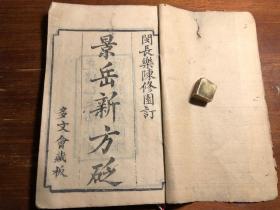 閩長樂陳修園訂
景岳新方砭
多文會藏板